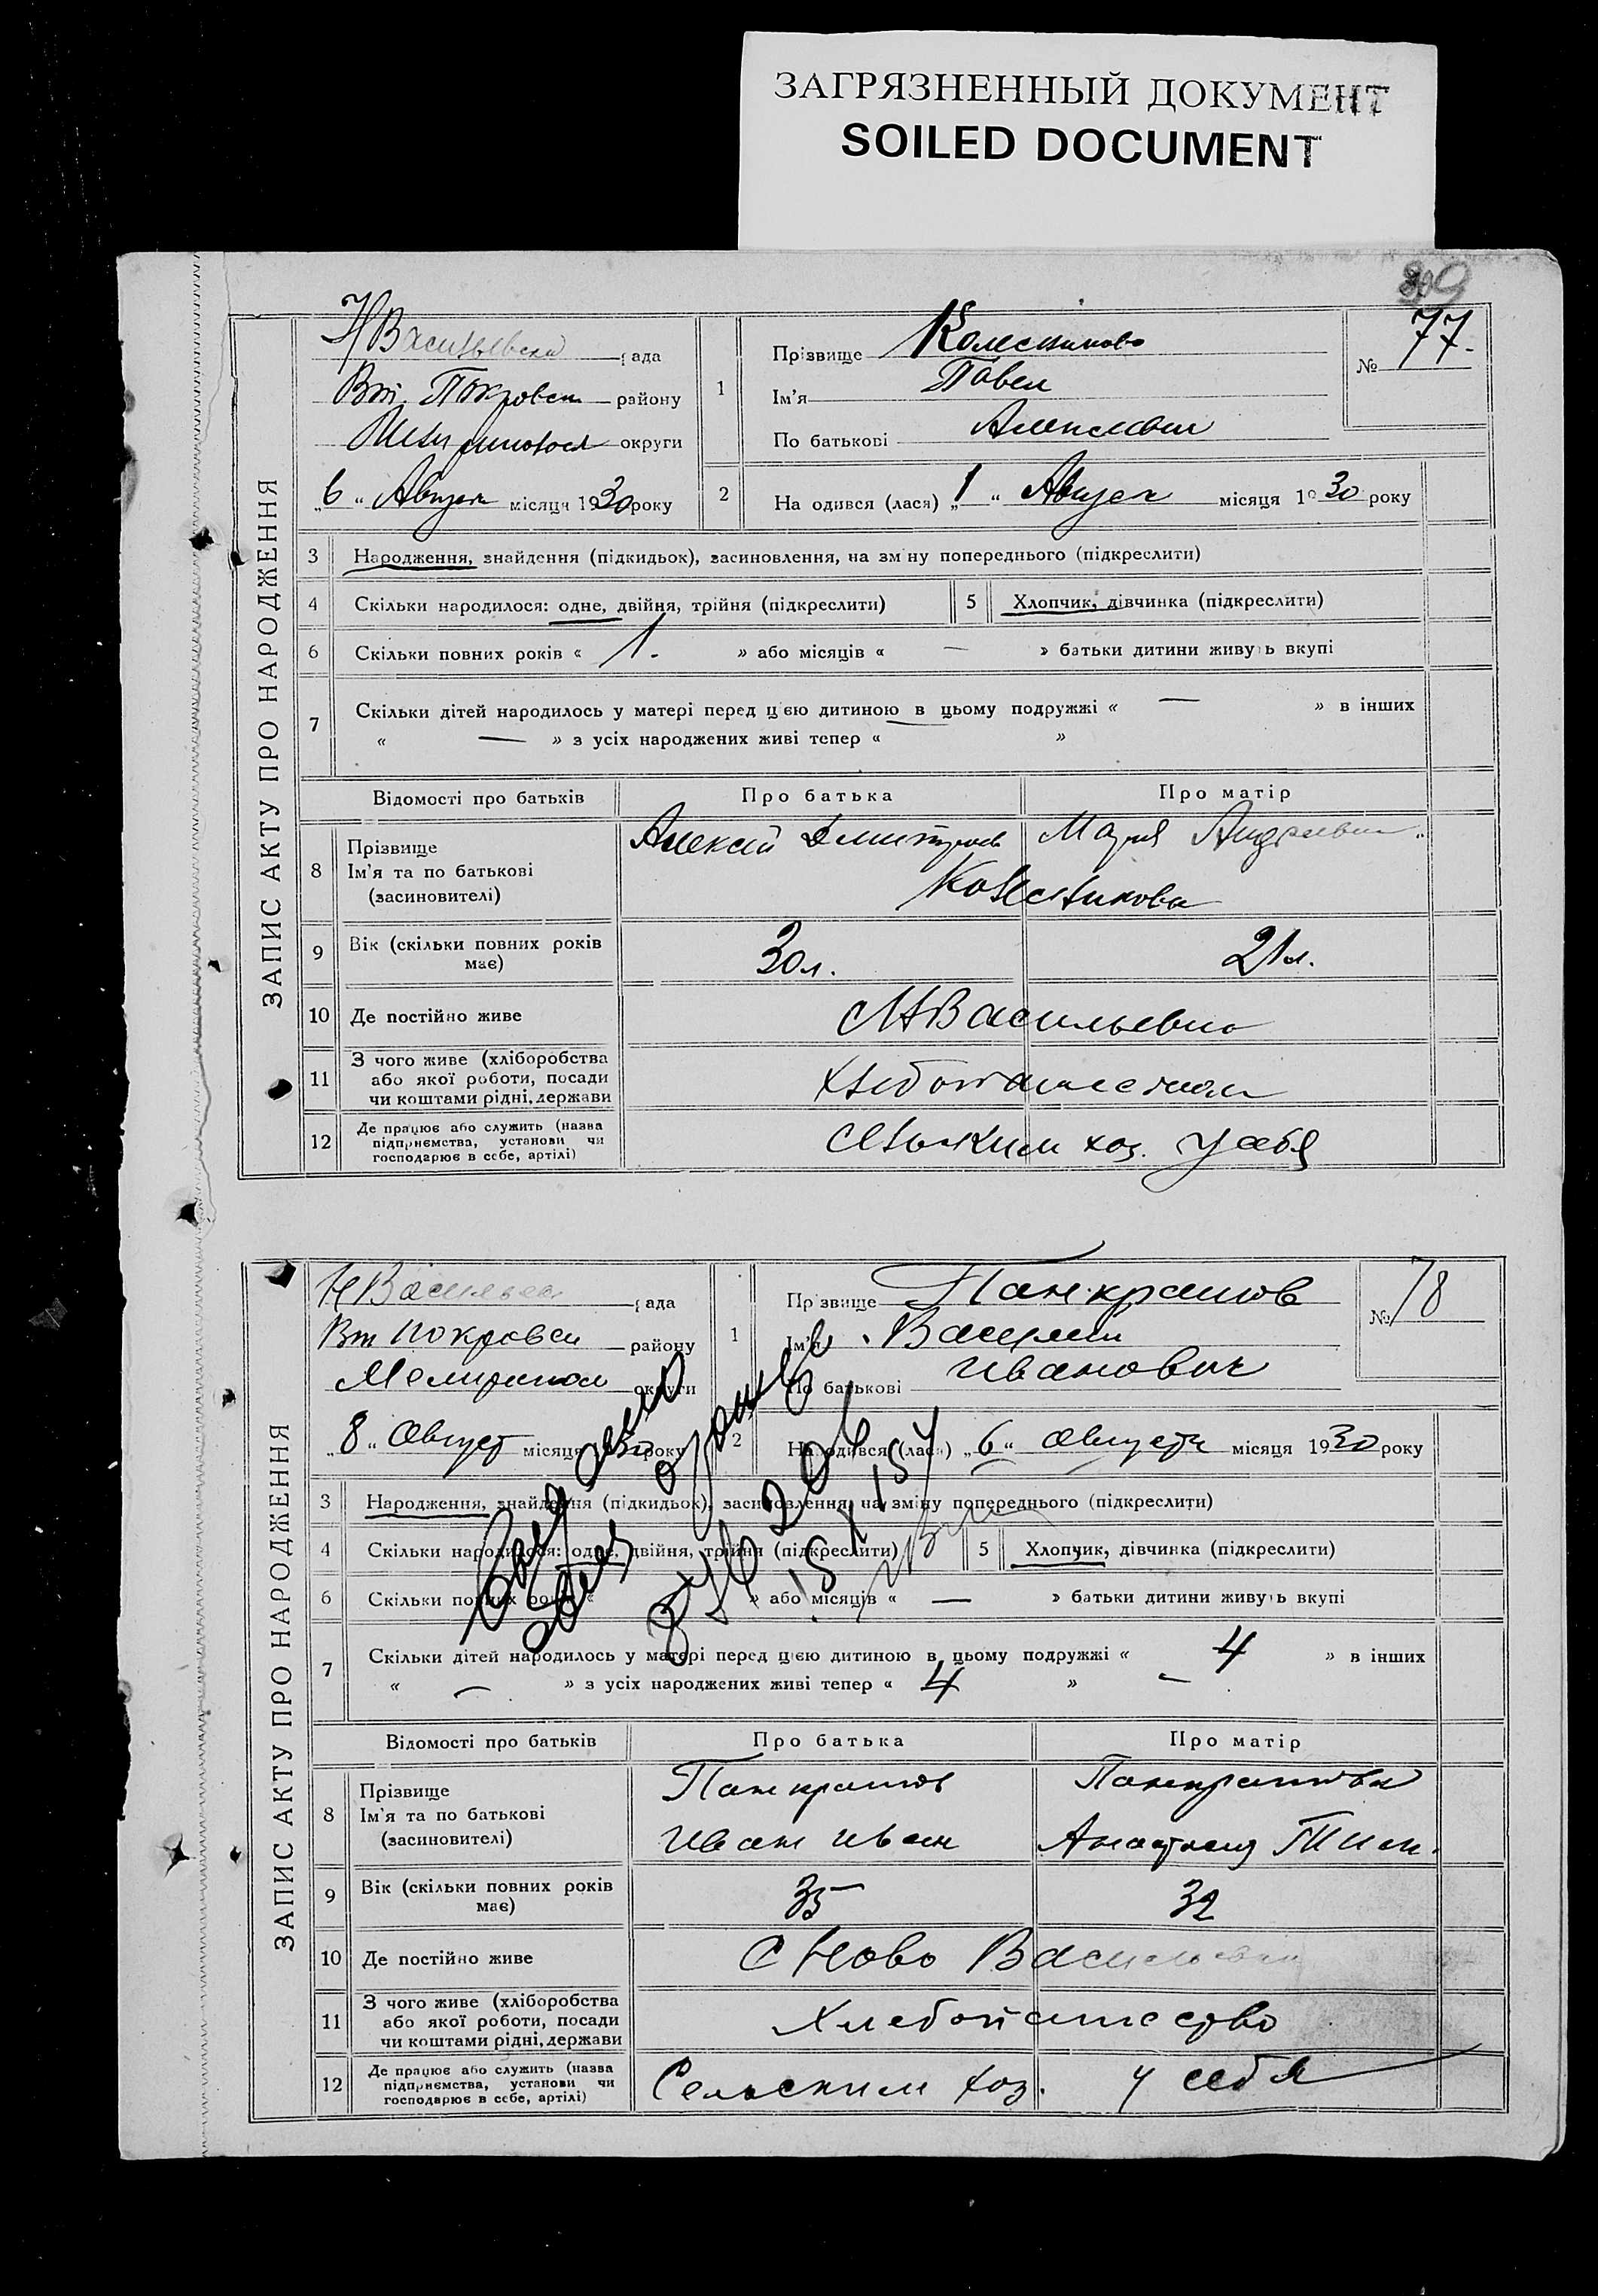 ЗАГРЯЗНЕННЫЙ ДОКУМЕНТ
SOILED DOCUMENT
ЗАПИС АКТУ ПРО НАРОДЖЕННЯ
рада
Вт. Покровск району
округи
„6“ Август місяця 1930 року
1
Прізвище Колесников
Ім'я Павел
По батькові Алексеевич
№ 77.
2
На одився (лася) „1“ Август місяця 1930 року
3 Народження, знайдення (підкидьок), засиновлення, на зміну попереднього (підкреслити)
4 Скільки народилося: одне, двійня, трійня (підкреслити)
5 Хлопчик, дівчинка (підкреслити)
6 Скільки повних років « 1. » або місяців « — » батьки дитини живуть вкупі
7 Скільки дітей народилось у матері перед цією дитиною в цьому подружжі « — » в інших
« — » з усіх народжених живі тепер « »
Відомості про батьків Про батька Про матір
8 Прізвище
Ім'я та по батькові
(засиновителі)
Алексей Дмитров Мария Андреевн
Колесникова
9 Вік (скільки повних років має) 30 л. 21 л.
10 Де постійно живе с Н Васильевка
11 З чого живе (хліборобства
або якої роботи, посади
чи коштами рідні, держави
12 Де працює або служить (назва
підприємства, установи чи
господарює в себе, артілі)
Сельским хоз. у себя
ЗАПИС АКТУ ПРО НАРОДЖЕННЯ
рада
Вт Покровск району
Мелитопол округи
„8“ Август місяця 1930 року
1
Прізвище Панкратов
Ім'я Василий
По батькові Иванович
№ 78
2
На одився (лася) „6“ Августа місяця 1930 року
3 Народження, знайдення (підкидьок), засиновлення, на зміну попереднього (підкреслити)
4 Скільки народилося: одне, двійня, трійня (підкреслити)
5 Хлопчик, дівчинка (підкреслити)
6 Скільки повних років « » або місяців « — » батьки дитини живуть вкупі
7 Скільки дітей народилось у матері перед цією дитиною в цьому подружжі « 4 » в інших
« — » з усіх народжених живі тепер « 4 » —
Відомості про батьків Про батька Про матір
8 Прізвище
Ім'я та по батькові
(засиновителі)
Панкратов Панкратова
Иван Иван Анастасия Тим.
9 Вік (скільки повних років має) 35 32
10 Де постійно живе с Ново Васильевка
11 З чого живе (хліборобства
або якої роботи, посади
чи коштами рідні, держави
Хлебопашество
12 Де працює або служить (назва
підприємства, установи чи
господарює в себе, артілі)
Сельским хоз. у себя